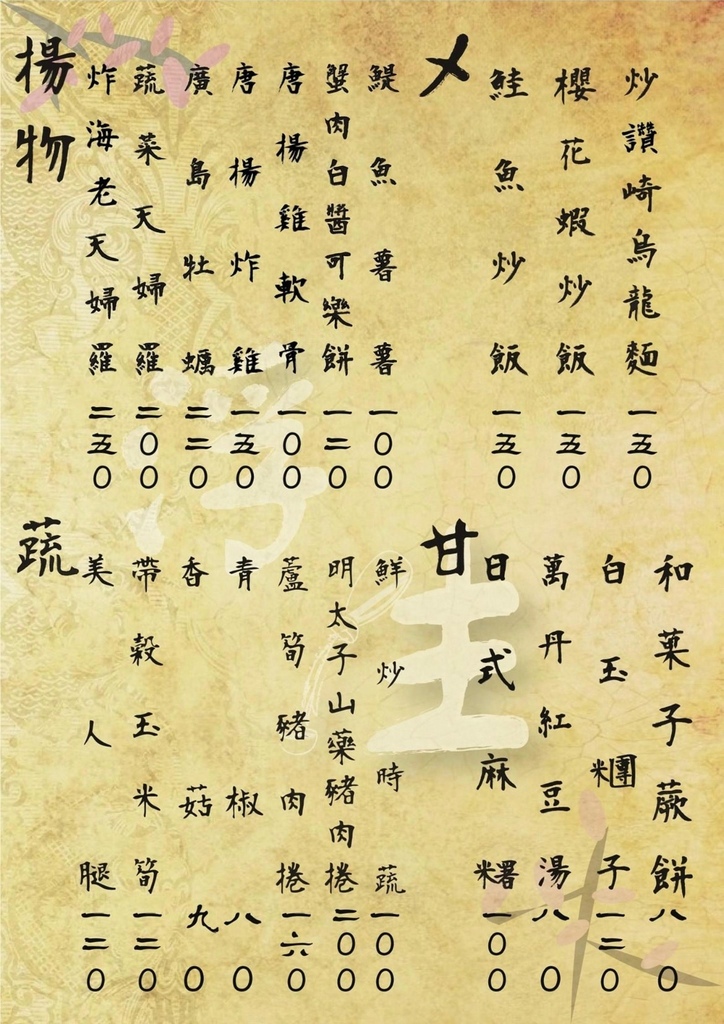 揚物
炸海老天婦羅二五〇
蔬菜天婦羅二〇〇
廣島牡蠣二二〇
唐揚炸雞一五〇
唐揚雞軟骨一〇〇
蟹肉白醬可樂餅一二〇
鯷魚薯薯一〇〇
〆
鮭魚炒飯一五〇
櫻花蝦炒飯一五〇
炒讚崎烏龍麵一五〇
蔬
美人腿一二〇
帶殼玉米筍一二〇
香菇九〇
青椒八〇
蘆筍豬肉捲一六〇
明太子山藥豬肉捲二〇〇
鮮炒時蔬一〇〇
甘
日式麻糬一〇〇
萬丹紅豆湯八〇
白玉糰子一二〇
和菓子蕨餅八〇
浮生